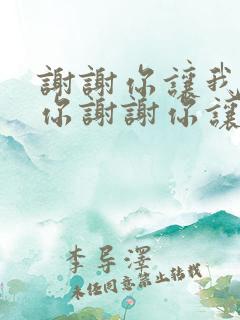 謝謝你讓我
你謝謝你讓
李导澤
未任同意禁止转载